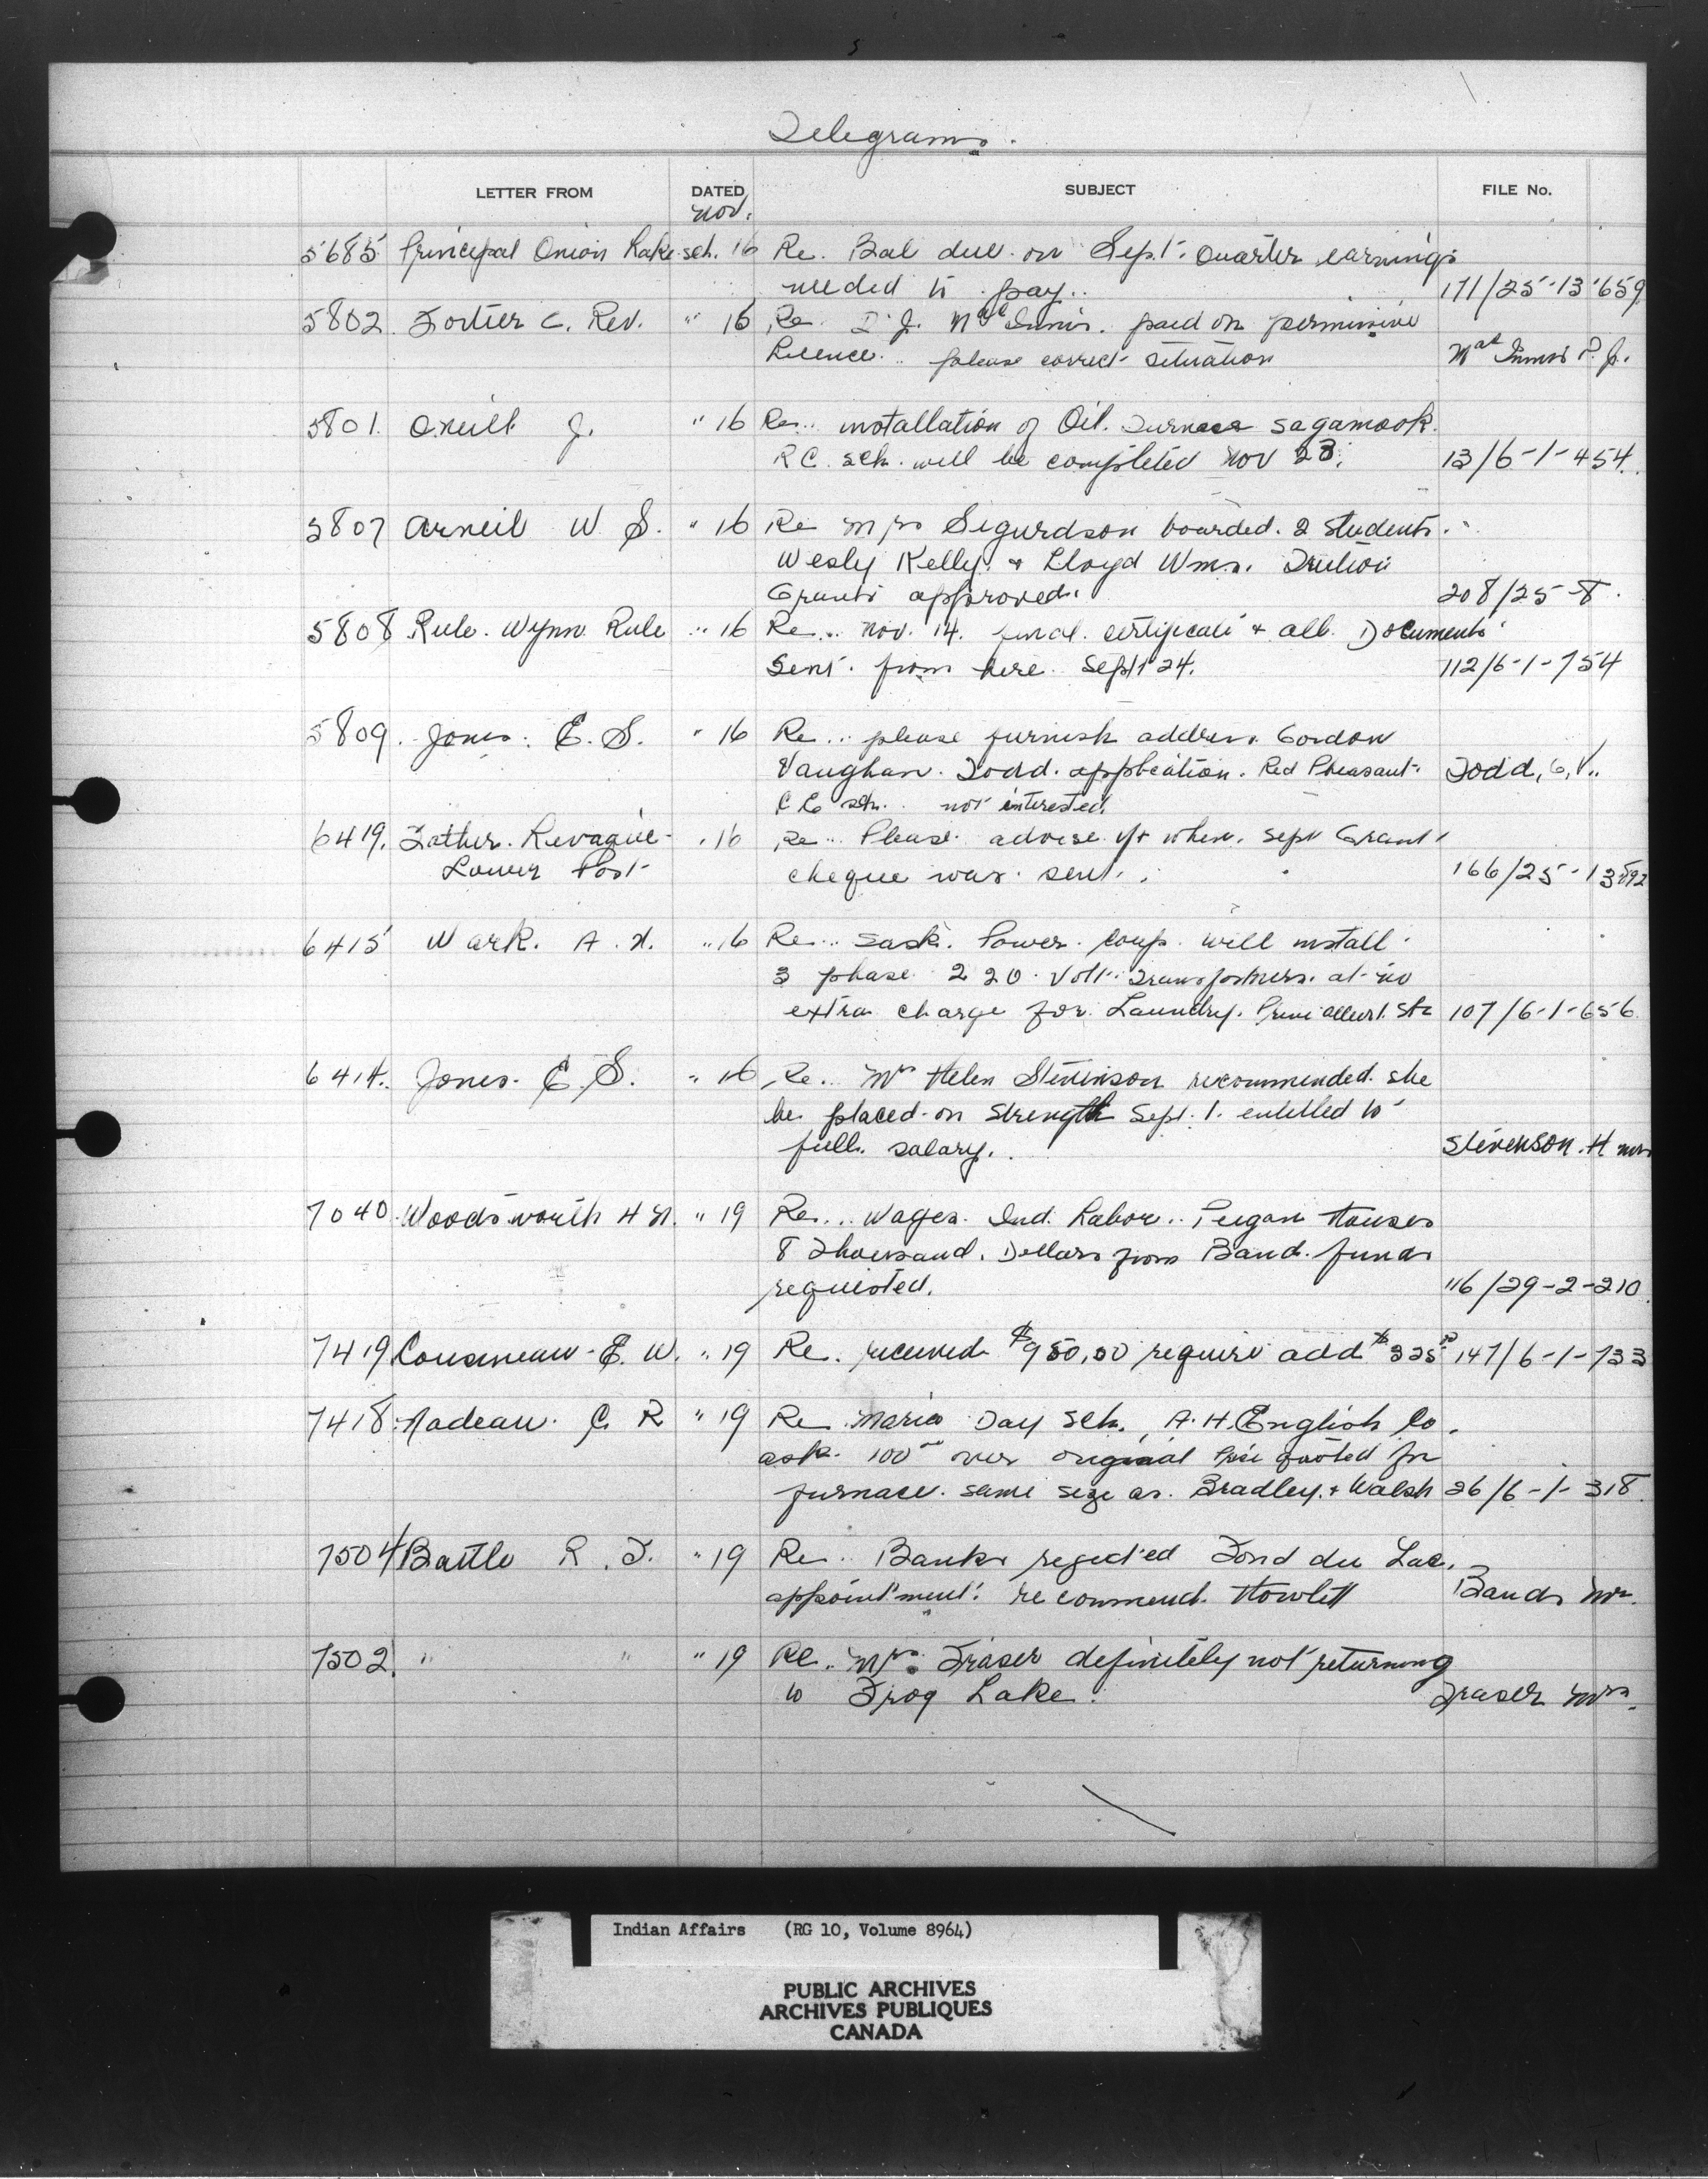 Telegrams.
LETTER FROM DATED SUBJECT FILE No.
Nov.
5685 Principal Onion Lake sch. 16 Re. Bal due on Sept. Quarter earnings
needed to pay.. 171/25-13-659
5802. Fortier C. Rev. " 16 Re. P. J. McInnis. paid on permissive
licence.. please correct situation McInnis P. J.
5801. O'Neill J. " 16 Re.. installation of Oil. Furnace Sagamook.
R C. sch. will be completed Nov 23. 13/6-1-454.
5807 Arneil W S. " 16 Re Mrs Sigurdson boarded. 2 students.
Wesly Kelly. + Lloyd Wms. Tuition
Grants approved. 208/25-8.
5808 Rule. Wynn Rule " 16 Re.. Nov. 14. final. certificate + all. Documents
Sent. from here. Sept 24. 112/6-1-754
5809. Jones. E. S. " 16 Re... please furnish address Gordon
Vaughan. Todd. application. Red Pheasant.
C E sch. not interested. Todd, G, V..
6419. Father. Levaque " 16 Re.. Please. advise if + when. Sept Grant
Lower Post cheque was. sent.. 166/25-13-592
6415 Wark. A. H. " 16 Re... Sask. Power. Corp. will install.
3 phase 220. Volt. Transformers. at no
extra charge for. Laundry. Prince Albert. St. 107/6-1-656
6414. Jones. E. S. " 16 Re... Mrs Helen Stevenson recommended. she
be placed on strength Sept. 1. entitled to
full. salary.. Stevenson. H Mrs
7040. Woodsworth H N. " 19 Re... Wages. Ind. Labor.. Peigan Houses
8 Thousand. Dollars from Band. funds
requested. 116/29-2-210.
7419 Cousineau. E. W. " 19 Re. received $950.00 require add $325.00 147/6-1-733
7418. Nadeau. C. R " 19 Re Maria Day sch., A. H. English Co.
ask. 100 over original price quoted for
furnace. same size as. Bradley. + Walsh 26/6-1-318.
7504 Battle R. F. " 19 Re.. Banks rejected Fond du Lac.
appointment. recommend. Howlett Banks Mr.
7502. " " " 19 Re.. Mrs. Fraser definitely not returning
to Frog Lake. Fraser Mrs.
Indian Affairs (RG 10, Volume 8964)
PUBLIC ARCHIVES
ARCHIVES PUBLIQUES
CANADA